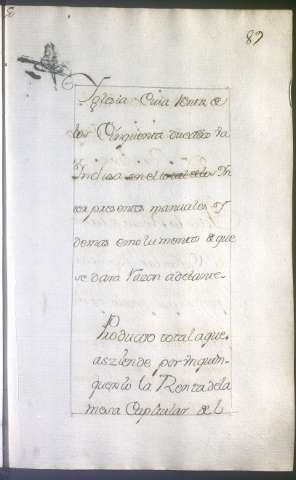 87
Yglesia Cuia Renta de
los Cinquenta ducados va
Inclusa en el total de los In
tas presentes manuales y
demas emolumentos de que
se dara razon adelante-
Producto total a que
asziende por vn quin-
quenio la Renta de la
mesa Capitular de l